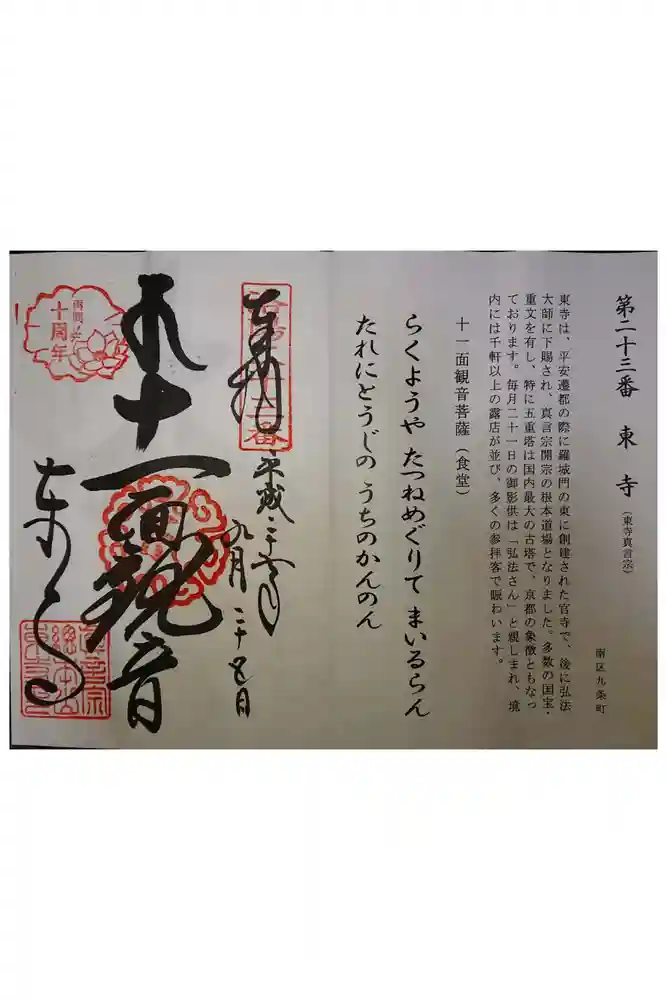 第二十三番 東寺 (東寺真言宗)
南区九条町
東寺は、平安遷都の際に羅城門の東に創建された官寺で、後に弘法
大師に下賜され、真言宗開宗の根本道場となりました。多数の国宝・
重文を有し、特に五重塔は国内最大の古塔で、京都の象徴ともなっ
ております。毎月二十一日の御影供は「弘法さん」と親しまれ、境
内には千軒以上の露店が並び、多くの参拝客で賑わいます。
十一面観音菩薩(食堂)
らくようや たつねめぐりて まいるらん
たれにとうじの うちのかんのん
奉拝
平成二十六年
九月二十五日
十一面観音
東寺
再興
十周年